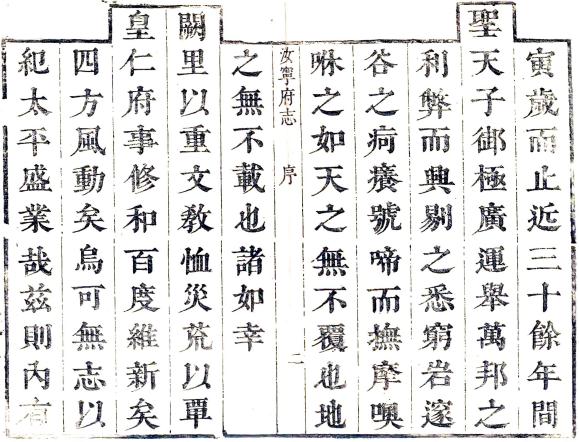 寅歲而止近三十餘年間
聖天子御極廣運舉萬邦之
利弊而興剔之悉窮岩邃
谷之疴癢號啼而撫摩噢
咻之如天之無不覆也地
汝寧府志 序 二
之無不載也諸如幸
闕里以重文教恤災荒以覃
皇仁府事修和百度維新矣
四方風動矣烏可無志以
紀太平盛業哉兹則內有